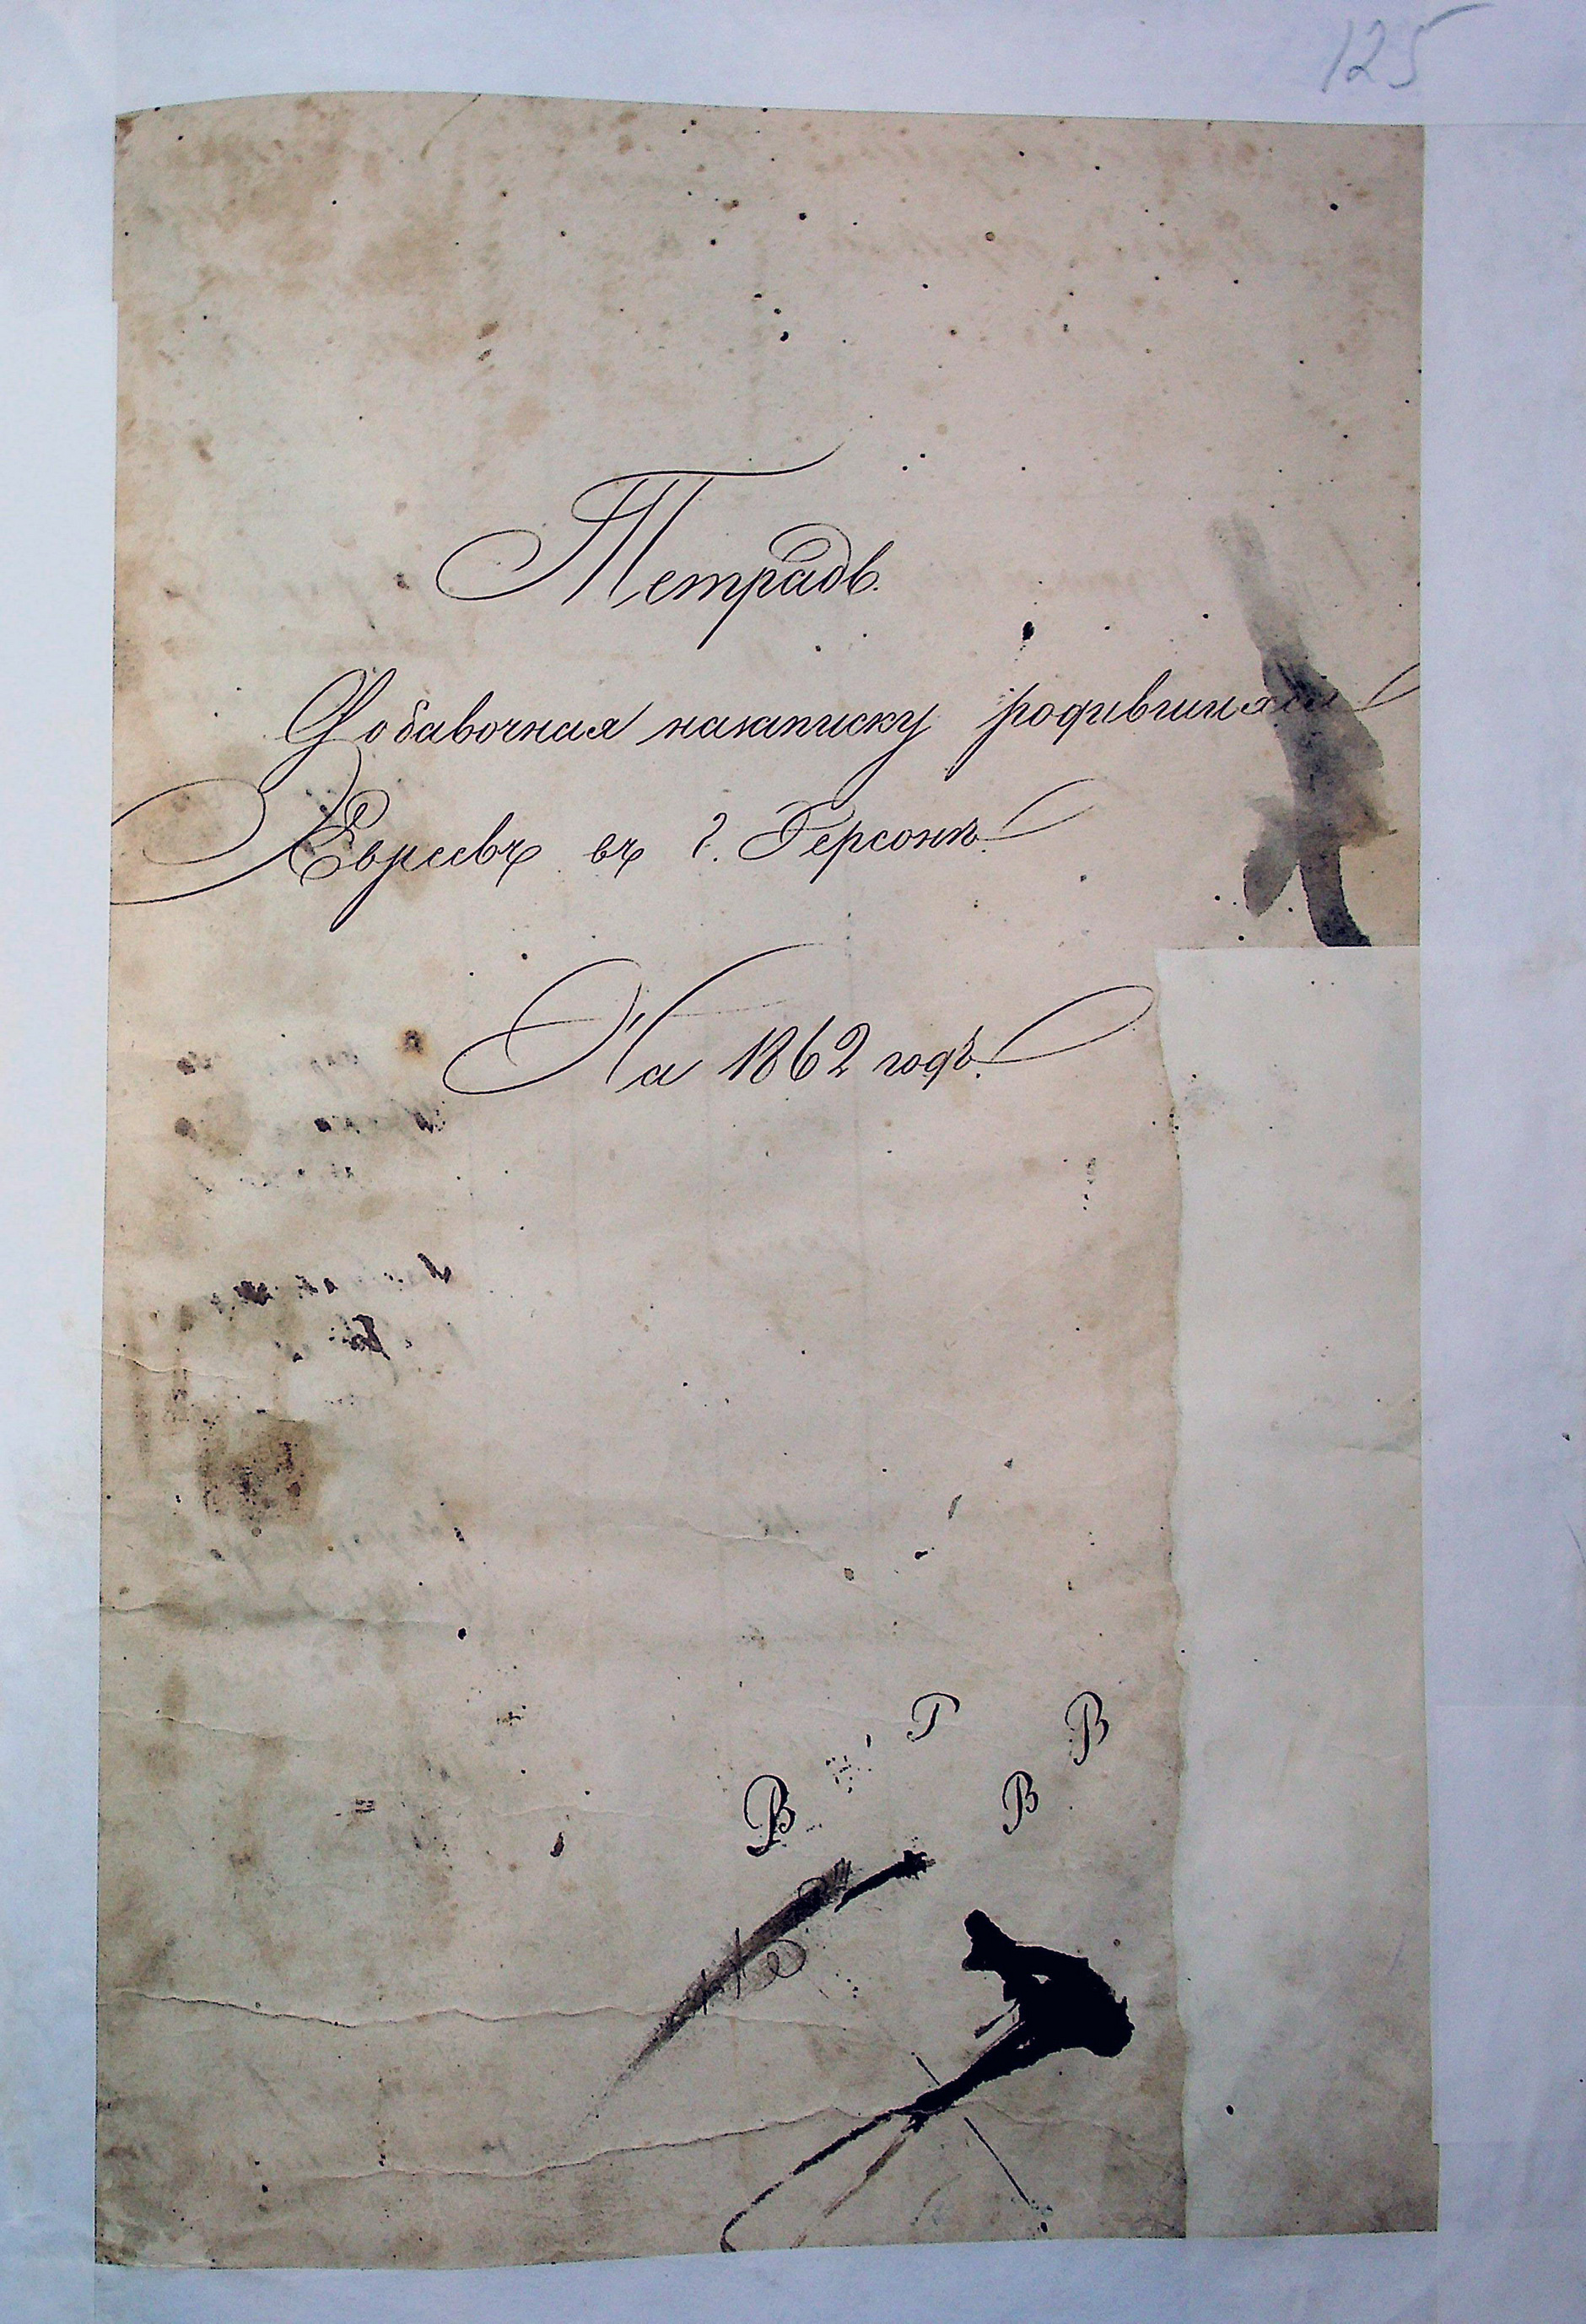 125
Тетрадь.
Добавочная назаписку родившихся
Евреевъ въ г. Херсонѣ.
На 1862 годъ.
Г В
В В